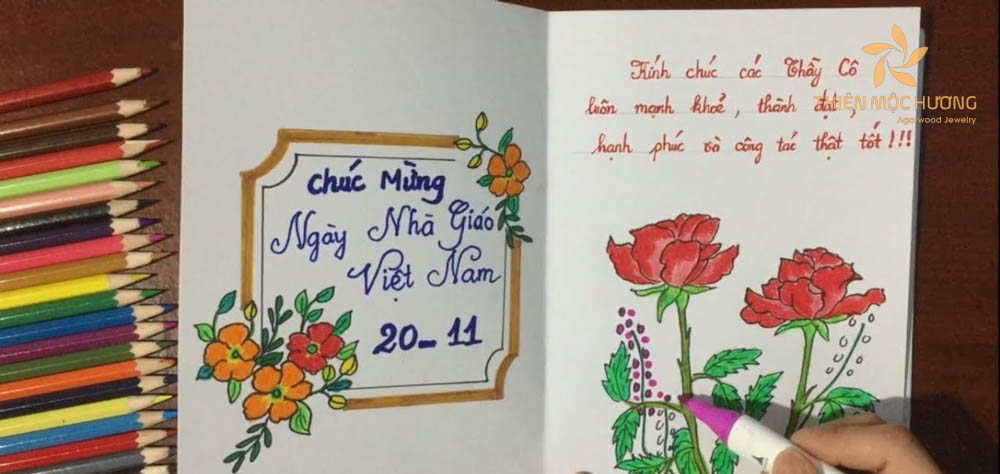 chúc Mừng
Ngày Nhà Giáo
Việt Nam
20-11
Kính chúc các Thầy Cô
luôn mạnh khoẻ, thành đạt,
hạnh phúc và công tác thật tốt!!!
THIÊN MỘC HƯƠNG
Agarwood Jewelry